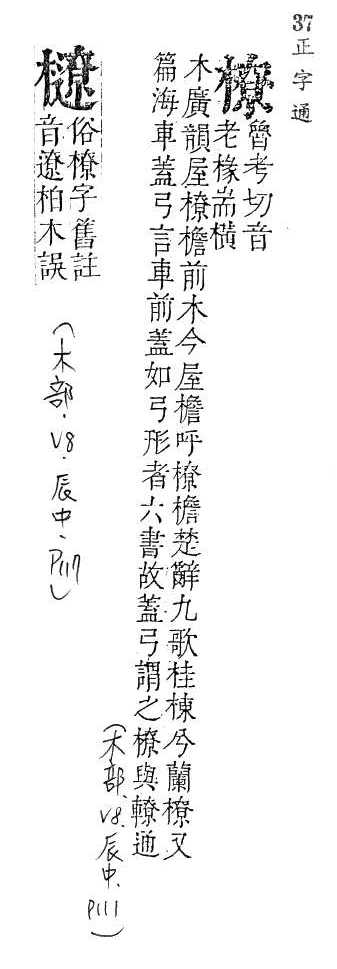 37 正字通
橑 魯考切音老椽耑橫
木廣韻屋橑檐前木今屋檐呼橑檐楚辭九歌桂棟兮蘭橑又
篇海車蓋弓言車前蓋如弓形者六書故蓋弓謂之橑與轑通
(木部.V8.辰中.P111)
橑 俗橑字舊註音遼柏木誤
(木部.V8.辰中.P117)